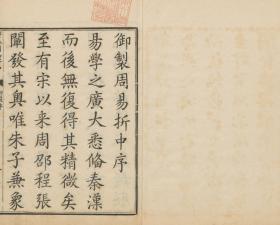 御製周易折中序
易學之廣大悉備秦漢
而後無復得其精微矣
至有宋以來周邵程張
闡發其奧唯朱子兼象